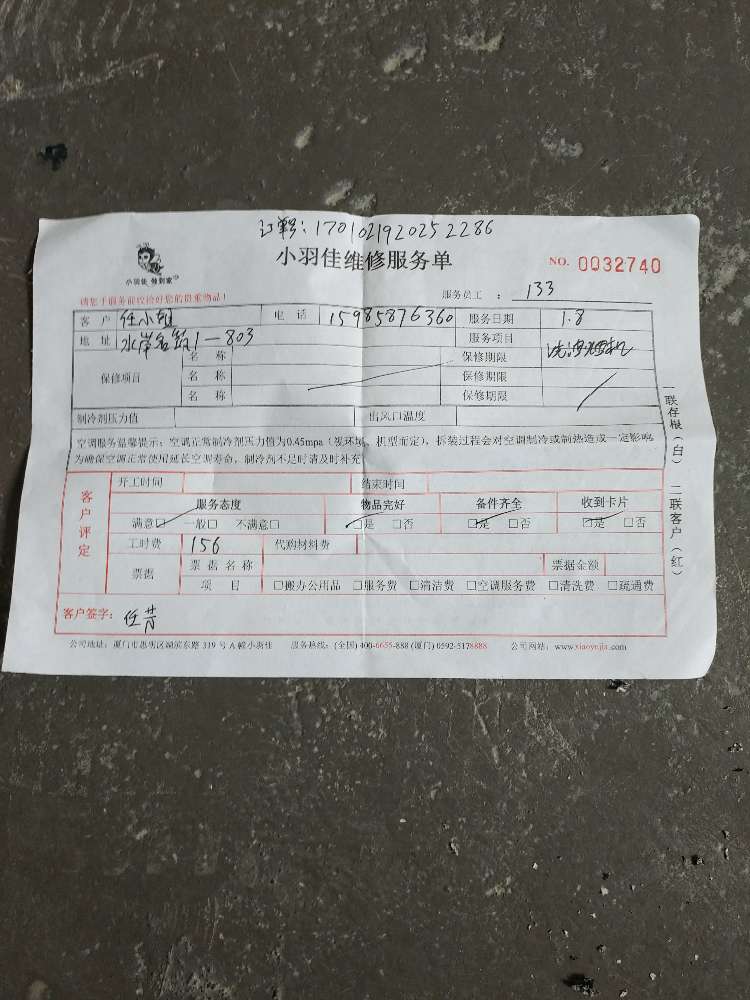 订单号:1701021920252286
小羽佳维修服务单
NO. 0032740
小羽佳 修到家
请您于服务前收捡好您的贵重物品!
服务员工 : 133
客 户 任小姐 电 话 15985876360 服务日期 1.8
地 址 水岸名筑1-803 服务项目 洗油烟机
保修项目 名 称 保修期限
名 称 保修期限
名 称 保修期限
制冷剂压力值 出风口温度
空调服务温馨提示:空调正常制冷剂压力值为0.45mpa(视环境、机型而定),拆装过程会对空调制冷或制热造成一定影响
为确保空调正常使用延长空调寿命,制冷剂不足时请及时补充
客户评定 开工时间 结束时间
服务态度 物品完好 备件齐全 收到卡片
满意☑ 一般□ 不满意□ ☑是 □否 ☑是 □否 ☑是 □否
工时费 156 代购材料费
票据 票据名称 票据金额
项 目 □搬办公用品 □服务费 □清洁费 □空调服务费 □清洗费 □疏通费
客户签字: 任芳
公司地址:厦门市思明区湖滨东路 319 号 A 幢小羽佳 服务热线:(全国) 400-6655-888 (厦门) 0592-5178888 公司网站:www.xiaoyujia.com
一联存根(白) 二联客户(红)